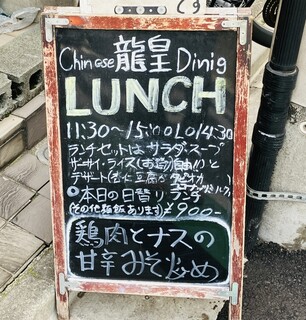 Chinese 龍皇 Dinig
LUNCH
11:30〜15:00 LO14:30
ランチセットは サラダ、スープ
ザーサイ・ライス(お替り自由)と
デザート(杏仁豆腐か タピオカ
◎本日の日替りランチ
(その他麺飯あります)¥900-
鶏肉とナスの
甘辛みそ炒め